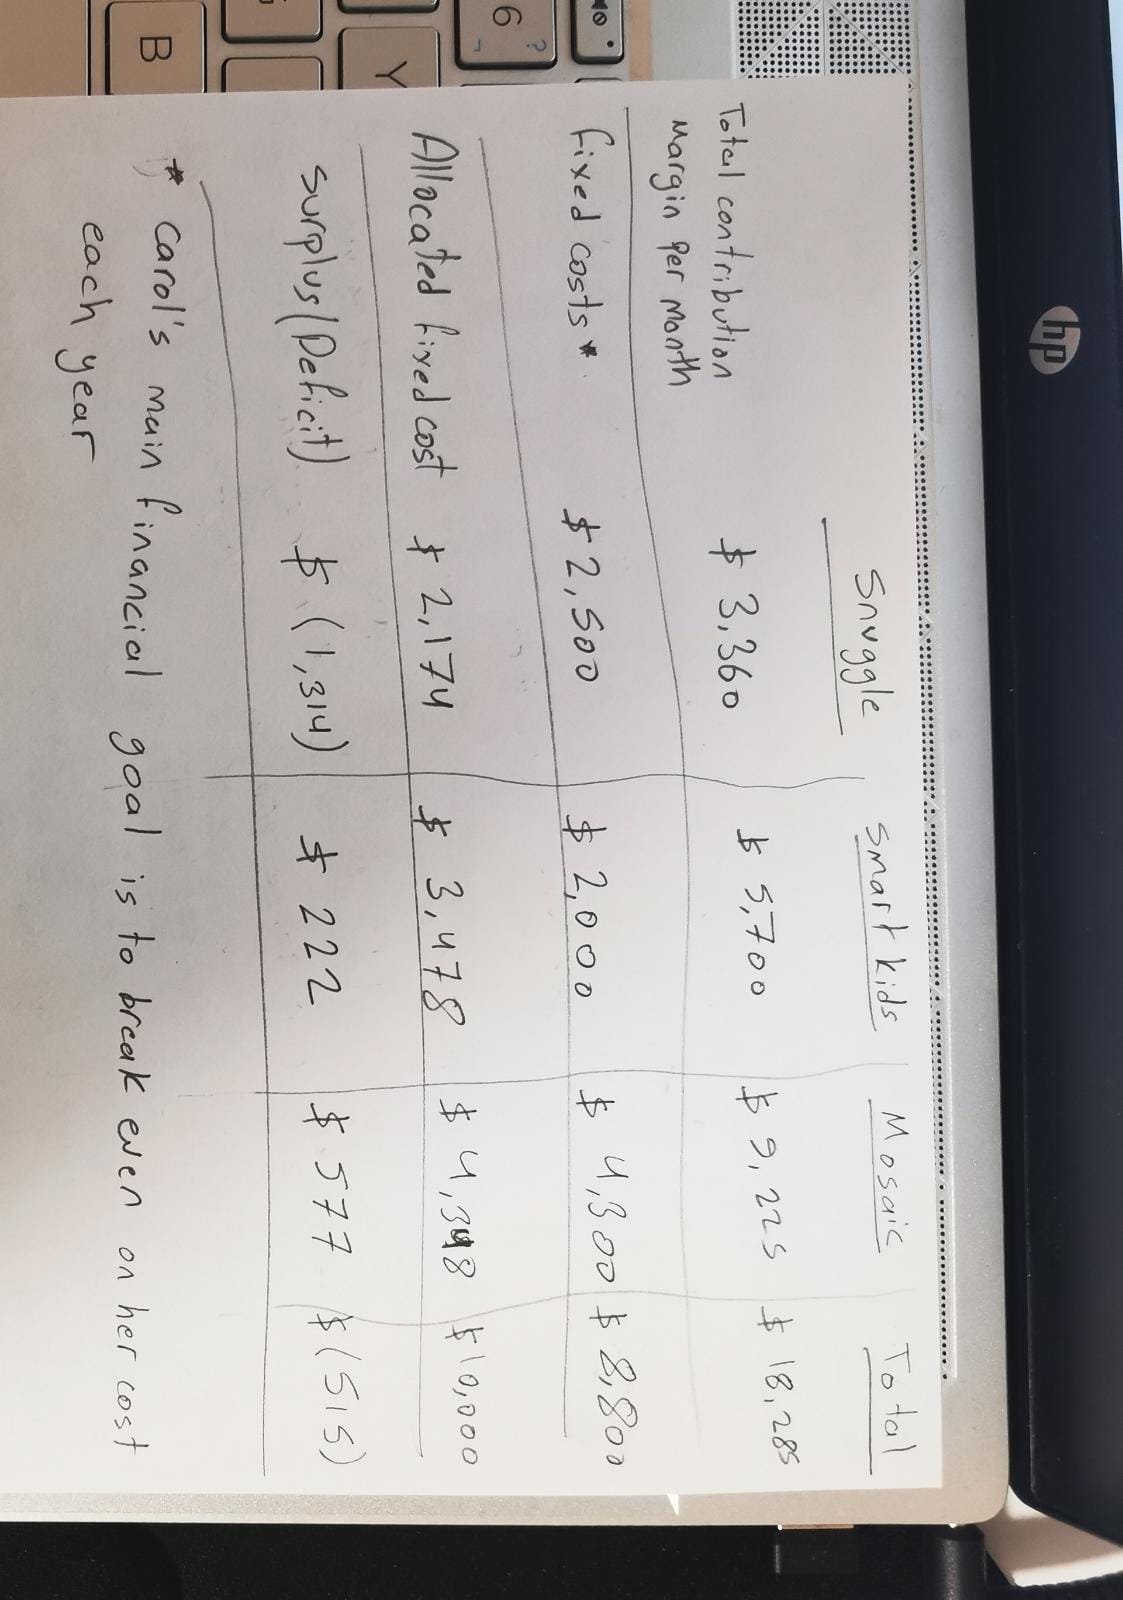 Snuggle Smart kids Mosaic Total
Total contribution
Margin per Month $ 3,360 $ 5,700 $ 9,225 $ 18,285
fixed costs * $ 2,500 $ 2,000 $ 4,300 $ 8,800
Allocated fixed cost $ 2,174 $ 3,478 $ 4,348 $ 10,000
Surplus/(Deficit) $ (1,314) $ 222 $ 577 $ (515)
* Carol's main financial goal is to break even on her cost
each year
hp
6
?
Y
B